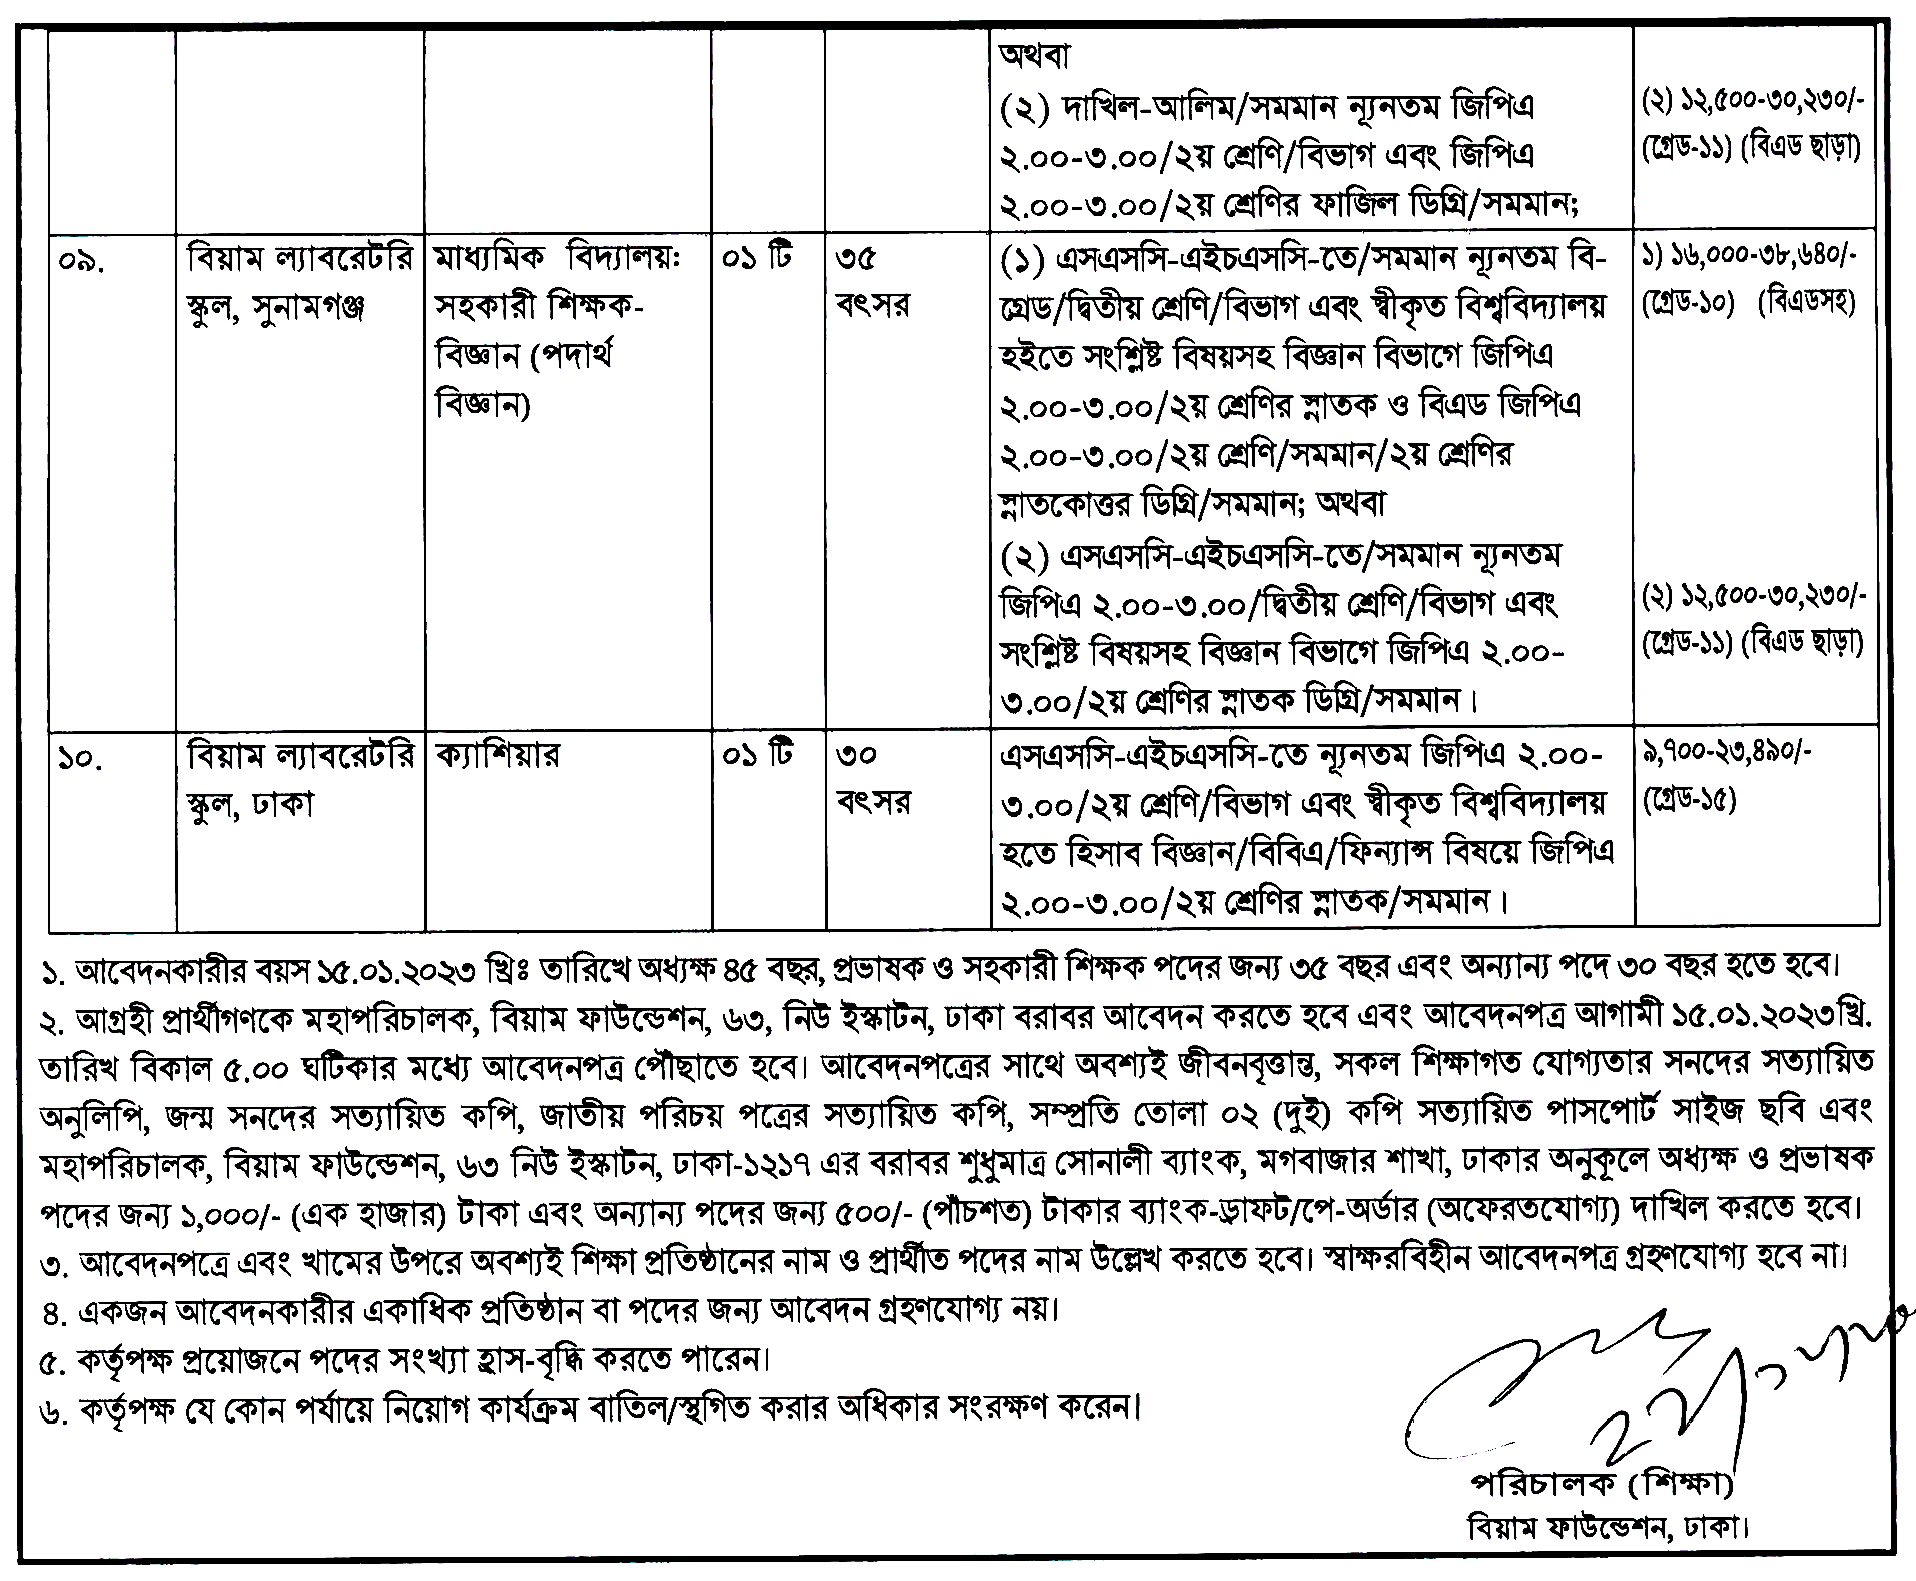 অথবা
(২) দাখিল-আলিম/সমমান ন্যূনতম জিপিএ
২.০০-৩.০০/২য় শ্রেণি/বিভাগ এবং জিপিএ
২.০০-৩.০০/২য় শ্রেণির ফাজিল ডিগ্রি/সমমান;
(২) ১২,৫০০-৩০,২৩০/-
(গ্রেড-১১) (বিএড ছাড়া)
০৯.
বিয়াম ল্যাবরেটরি
স্কুল, সুনামগঞ্জ
মাধ্যমিক বিদ্যালয়ঃ
সহকারী শিক্ষক-
বিজ্ঞান (পদার্থ
বিজ্ঞান)
০১ টি
৩৫
বৎসর
(১) এসএসসি-এইচএসসি-তে/সমমান ন্যূনতম বি-
গ্রেড/দ্বিতীয় শ্রেণি/বিভাগ এবং স্বীকৃত বিশ্ববিদ্যালয়
হইতে সংশ্লিষ্ট বিষয়সহ বিজ্ঞান বিভাগে জিপিএ
২.০০-৩.০০/২য় শ্রেণির স্নাতক ও বিএড জিপিএ
২.০০-৩.০০/২য় শ্রেণি/সমমান/২য় শ্রেণির
স্নাতকোত্তর ডিগ্রি/সমমান; অথবা
(২) এসএসসি-এইচএসসি-তে/সমমান ন্যূনতম
জিপিএ ২.০০-৩.০০/দ্বিতীয় শ্রেণি/বিভাগ এবং
সংশ্লিষ্ট বিষয়সহ বিজ্ঞান বিভাগে জিপিএ ২.০০-
৩.০০/২য় শ্রেণির স্নাতক ডিগ্রি/সমমান।
১) ১৬,০০০-৩৮,৬৪০/-
(গ্রেড-১০) (বিএডসহ)
(২) ১২,৫০০-৩০,২৩০/-
(গ্রেড-১১) (বিএড ছাড়া)
১০.
বিয়াম ল্যাবরেটরি
স্কুল, ঢাকা
ক্যাশিয়ার
০১ টি
৩০
বৎসর
এসএসসি-এইচএসসি-তে ন্যূনতম জিপিএ ২.০০-
৩.০০/২য় শ্রেণি/বিভাগ এবং স্বীকৃত বিশ্ববিদ্যালয়
হতে হিসাব বিজ্ঞান/বিবিএ/ফিন্যান্স বিষয়ে জিপিএ
২.০০-৩.০০/২য় শ্রেণির স্নাতক/সমমান।
৯,৭০০-২৩,৪৯০/-
(গ্রেড-১৫)
১. আবেদনকারীর বয়স ১৫.০১.২০২৩ খ্রিঃ তারিখে অধ্যক্ষ ৪৫ বছর, প্রভাষক ও সহকারী শিক্ষক পদের জন্য ৩৫ বছর এবং অন্যান্য পদে ৩০ বছর হতে হবে।
২. আগ্রহী প্রার্থীগণকে মহাপরিচালক, বিয়াম ফাউন্ডেশন, ৬৩, নিউ ইস্কাটন, ঢাকা বরাবর আবেদন করতে হবে এবং আবেদনপত্র আগামী ১৫.০১.২০২৩খ্রি.
তারিখ বিকাল ৫.০০ ঘটিকার মধ্যে আবেদনপত্র পৌঁছাতে হবে। আবেদনপত্রের সাথে অবশ্যই জীবনবৃত্তান্ত, সকল শিক্ষাগত যোগ্যতার সনদের সত্যায়িত
অনুলিপি, জন্ম সনদের সত্যায়িত কপি, জাতীয় পরিচয় পত্রের সত্যায়িত কপি, সম্প্রতি তোলা ০২ (দুই) কপি সত্যায়িত পাসপোর্ট সাইজ ছবি এবং
মহাপরিচালক, বিয়াম ফাউন্ডেশন, ৬৩ নিউ ইস্কাটন, ঢাকা-১২১৭ এর বরাবর শুধুমাত্র সোনালী ব্যাংক, মগবাজার শাখা, ঢাকার অনুকূলে অধ্যক্ষ ও প্রভাষক
পদের জন্য ১,০০০/- (এক হাজার) টাকা এবং অন্যান্য পদের জন্য ৫০০/- (পাঁচশত) টাকার ব্যাংক-ড্রাফট/পে-অর্ডার (অফেরতযোগ্য) দাখিল করতে হবে।
৩. আবেদনপত্রে এবং খামের উপরে অবশ্যই শিক্ষা প্রতিষ্ঠানের নাম ও প্রার্থীত পদের নাম উল্লেখ করতে হবে। স্বাক্ষরবিহীন আবেদনপত্র গ্রহণযোগ্য হবে না।
৪. একজন আবেদনকারীর একাধিক প্রতিষ্ঠান বা পদের জন্য আবেদন গ্রহণযোগ্য নয়।
৫. কর্তৃপক্ষ প্রয়োজনে পদের সংখ্যা হ্রাস-বৃদ্ধি করতে পারেন।
৬. কর্তৃপক্ষ যে কোন পর্যায়ে নিয়োগ কার্যক্রম বাতিল/স্থগিত করার অধিকার সংরক্ষণ করেন।
পরিচালক (শিক্ষা)
বিয়াম ফাউন্ডেশন, ঢাকা।